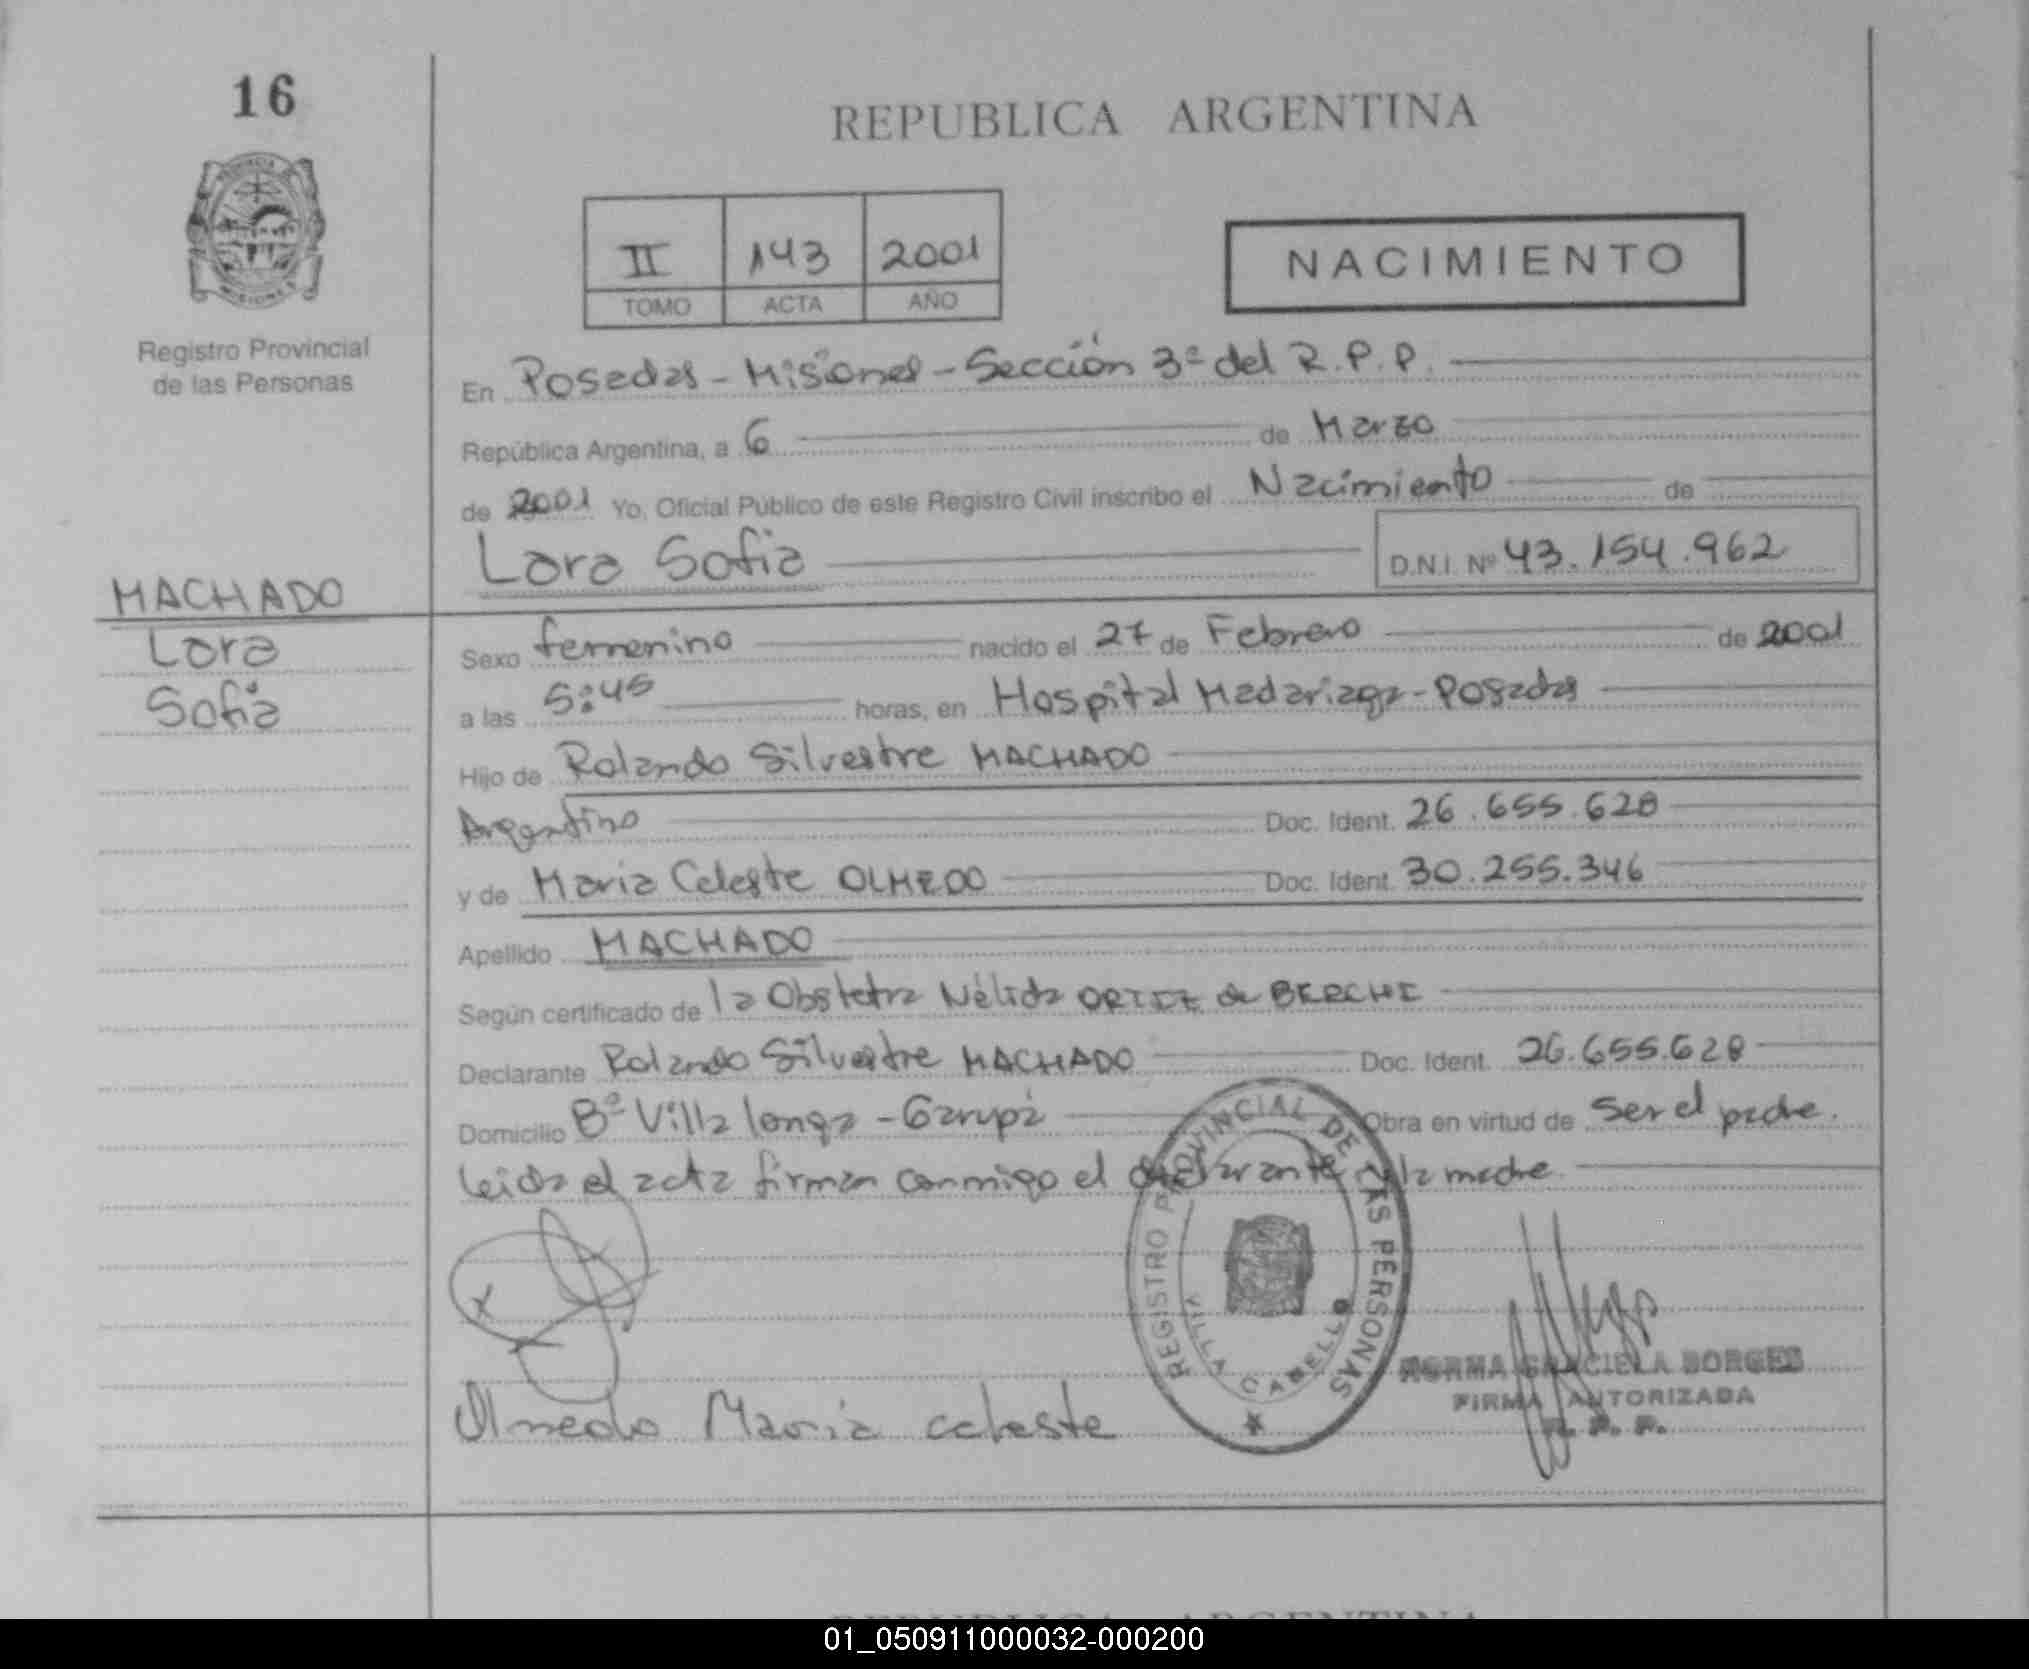 16
REPUBLICA ARGENTINA
II 143 2001
TOMO ACTA AÑO
NACIMIENTO
Registro Provincial
de las Personas
En Posadas - Misiones - Sección 3ª del R.P.P.
República Argentina, a 6 de Marzo
de 2001 Yo, Oficial Público de este Registro Civil inscribo el Nacimiento de
Lara Sofia D.N.I. Nº 43.154.962
MACHADO
Lara
Sofia
Sexo femenino nacido el 27 de Febrero de 2001
a las 5:45 horas, en Hospital Madariaga - Posadas
Hijo de Rolando Silvestre MACHADO
Argentino Doc. Ident. 26.655.628
y de Maria Celeste OLMEDO Doc. Ident. 30.255.346
Apellido MACHADO
Según certificado de la Obstetra Nélida ORTIZ de BERCHI
Declarante Rolando Silvestre MACHADO Doc. Ident. 26.655.628
Domicilio Bº Villa longa - Garupá Obra en virtud de Ser el padre.
leida el acta firman conmigo el declarante y la madre.
REGISTRO PROVINCIAL DE LAS PERSONAS
VILLA CABELLO
NORMA GRACIELA BORGES
FIRMA AUTORIZADA
R. P. P.
Olmedo Maria celeste
REPUBLICA ARGENTINA
01_050911000032-000200